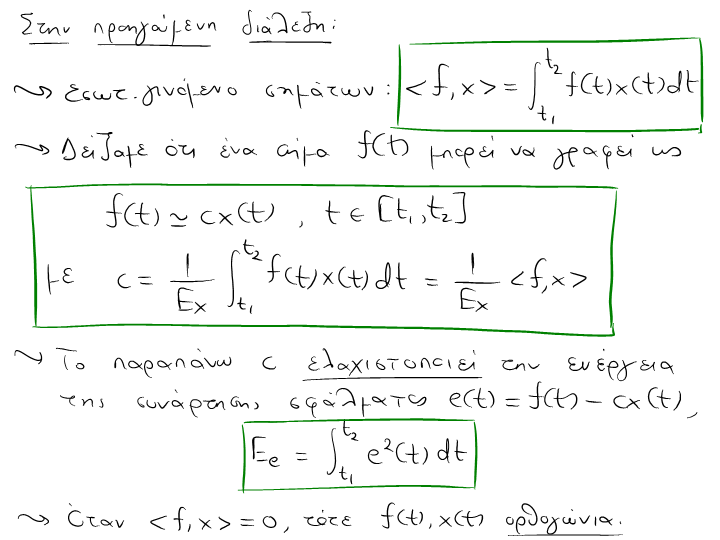 Στην προηγούμενη διάλεξη:
⇝ Εσωτ. γινόμενο σημάτων: <f,x> = ∫_{t₁}^{t₂} f(t)x(t)dt
⇝ Δείξαμε ότι ένα σήμα f(t) μπορεί να γραφεί ως
f(t) ≃ cx(t) , t ∈ [t₁,t₂]
με c = 1/Eₓ ∫_{t₁}^{t₂} f(t)x(t)dt = 1/Eₓ <f,x>
⇝ Το παραπάνω c ελαχιστοποιεί την ενέργεια
της συνάρτησης σφάλματος e(t) = f(t) - cx(t),
E_e = ∫_{t₁}^{t₂} e²(t) dt
⇝ Όταν <f,x> = 0, τότε f(t), x(t) ορθογώνια.